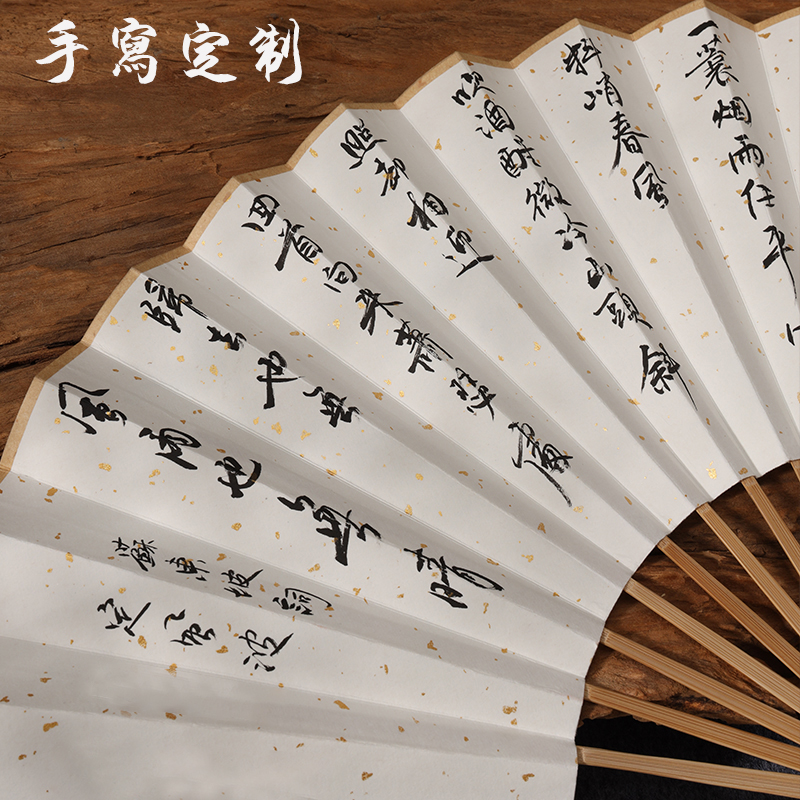 手寫定制
一蓑烟雨任平
料峭春風
吹酒醒微冷山頭斜
照却相迎
回首向来蕭瑟處
歸去也無
風雨也無晴
蘇東坡詞
定風波